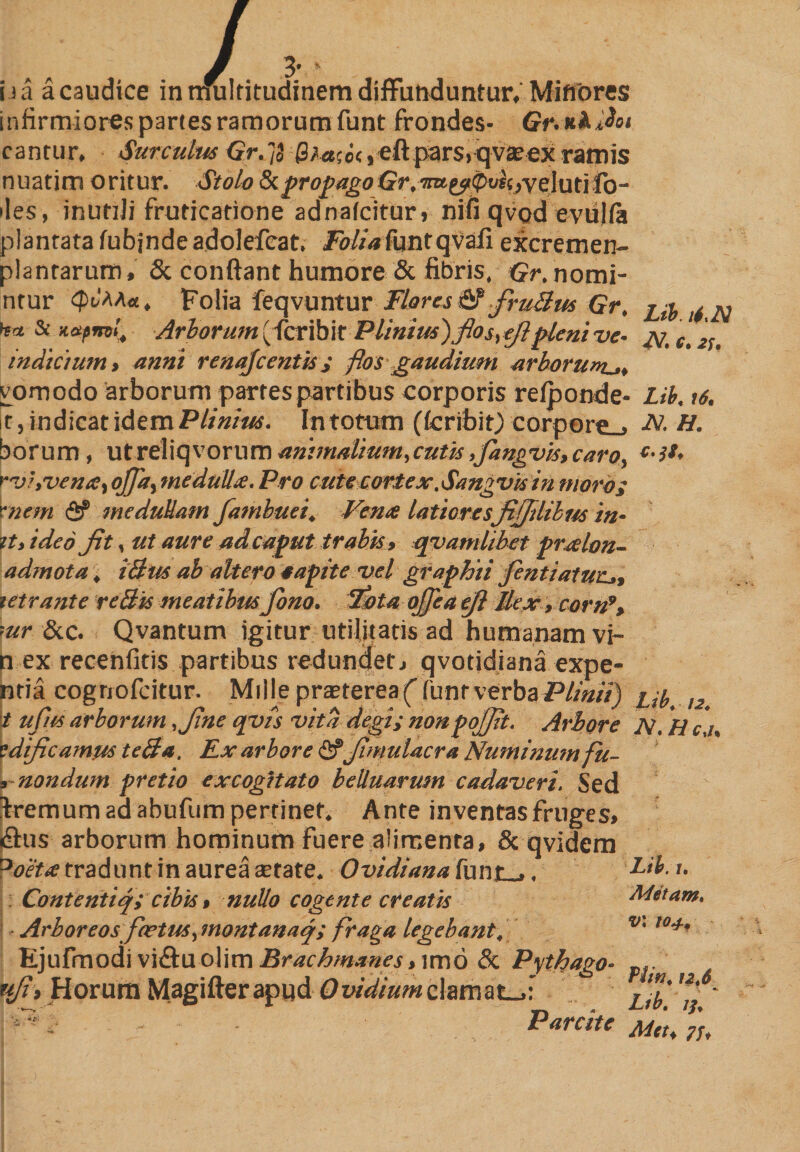 3.
ijā à caudice in multitudinem diffunduntur. Minores
infirmiores partes ramorum sunt frondes. Gr. κλάδοι
cantur. Surculus Gr. ἢ βλαςὸς, est pars, qvæ ex ramis
nuatim oritur. Stolo & propago Gr. παραφυὰς, veluti so-
les, inutili fruticatione adnascitur, nisi qvod evulsa
plantata subinde adolescat. Folia sunt qvasi excremen-
plantarum, & constant humore & fibris, Gr. nomi-
ntur φύλλα. Folia seqvuntur Flores & fructus Gr.
& καρποί. Arborum (scribit Plinius) flos, est pleni ve-
indicium, anni renascentis; flos gaudium arborum.
vomodo arborum partes partibus corporis responde-
t, indicat idem Plinius. In totum (scribit) corpore
borum, ut reliqvorum animalium, cutis, sangvis, caro,
rvi, venæ, ossa, medullæ. Pro cute cortex. Sangvis in moro;
rnem & medullam sambuci. Venæ latiores fissilibus in-
it, ideò fit, ut aure ad caput trabis, qvamlibet prælon-
admota, ictus ab altero capite vel graphii sentiatur,
etrante rectis meatibus sono. Tota ossea est Ilex, corn⁹,
ur &c. Qvantum igitur utilitatis ad humanam vi-
n ex recensitis partibus redundet, qvotidianâ expe-
ntiâ cognoscitur. Mille præterea (sunt verba Plinii)
t usus arborum, sine qvis vita degi; non possit. Arbore
ædificamus tecta. Ex arbore & simulacra Numinum fu-
, nondum pretio excogitato belluarum cadaveri. Sed
tremum ad abusum pertinet. Ante inventas fruges,
ctus arborum hominum fuere alimenta, & qvidem
Poëtæ tradunt in aureâ ætate. Ovidiana sunt.
Contentiq; cibis, nullo cogente creatis
Arboreos fœtus, montanaq; fraga legebant.
Ejusmodi victu olim Brachmanes, imò & Pythago-
usi, Horum Magister apud Ovidium clamat:
Parcite
Lib. 16. N
N. c. 25.
Lib. 16.
N. H.
c. 38.
Lib. 12.
N. H c.1.
Lib. 1.
Metam.
V: 104.
Plin. 12,6
Lib. 15.
Met. 75.